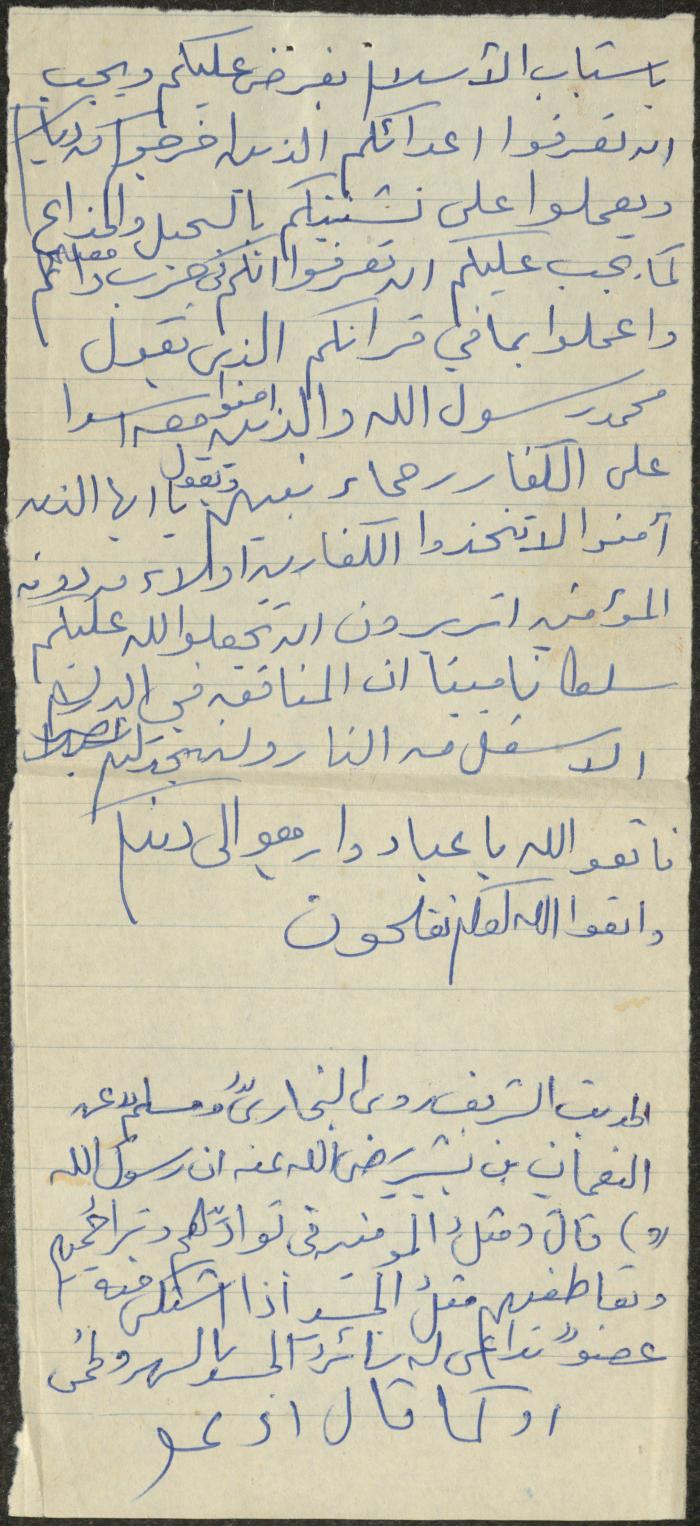 يا شباب الاسلام يفرض عليكم ويجب
ان تعرفوا اعدائكم الذين اخرجوكم من دياركم
ويعملوا على تشتيتكم بالحيل والخداع
كما يجب عليكم ان تعرفوا انكم في حرب دائم معهم
واعملوا بما في قرانكم الذي يقول
محمد رسول الله والذين امنوا معه اشدا
على الكفار رحماء بينهم ويقول يا ايها الذين
آمنوا لا تتخذوا الكافرين اولاء من دون
المؤمنين اتريدون ان تجعلوا لله عليكم
سلطانا مبينا ان المنافقين في الدرك
الاسفل من النار ولن تجد لهم نصيرا
فاتقوا الله يا عباد وارجعوا الى دينكم
واتقوا الله لعلكم تفلحون
الحديث الشريف روى البخاريُّ ومسلم عن
النعمان بن بشير رَضي الله عنه ان رسولَ الله
(ص) قال مثلُ المومنين في توادّهم وتراحُمهم
وتعاطفهم مثلُ الجسَد أذا اشتكى منه
عضوٌ تداعى له سائرُ الجسد بالسهر والحُمى
او كما قال